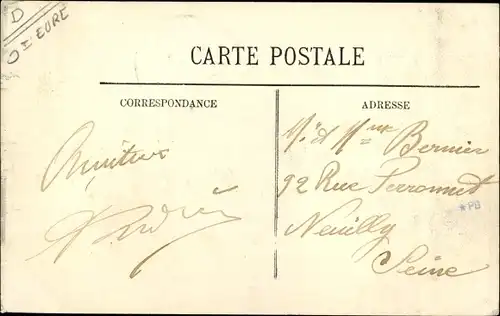 D
I'EURE
CARTE POSTALE
CORRESPONDANCE
ADRESSE
Amitiés
M. & Mme Bernier
92 Rue Perronnet
Neuilly
Seine
*PB